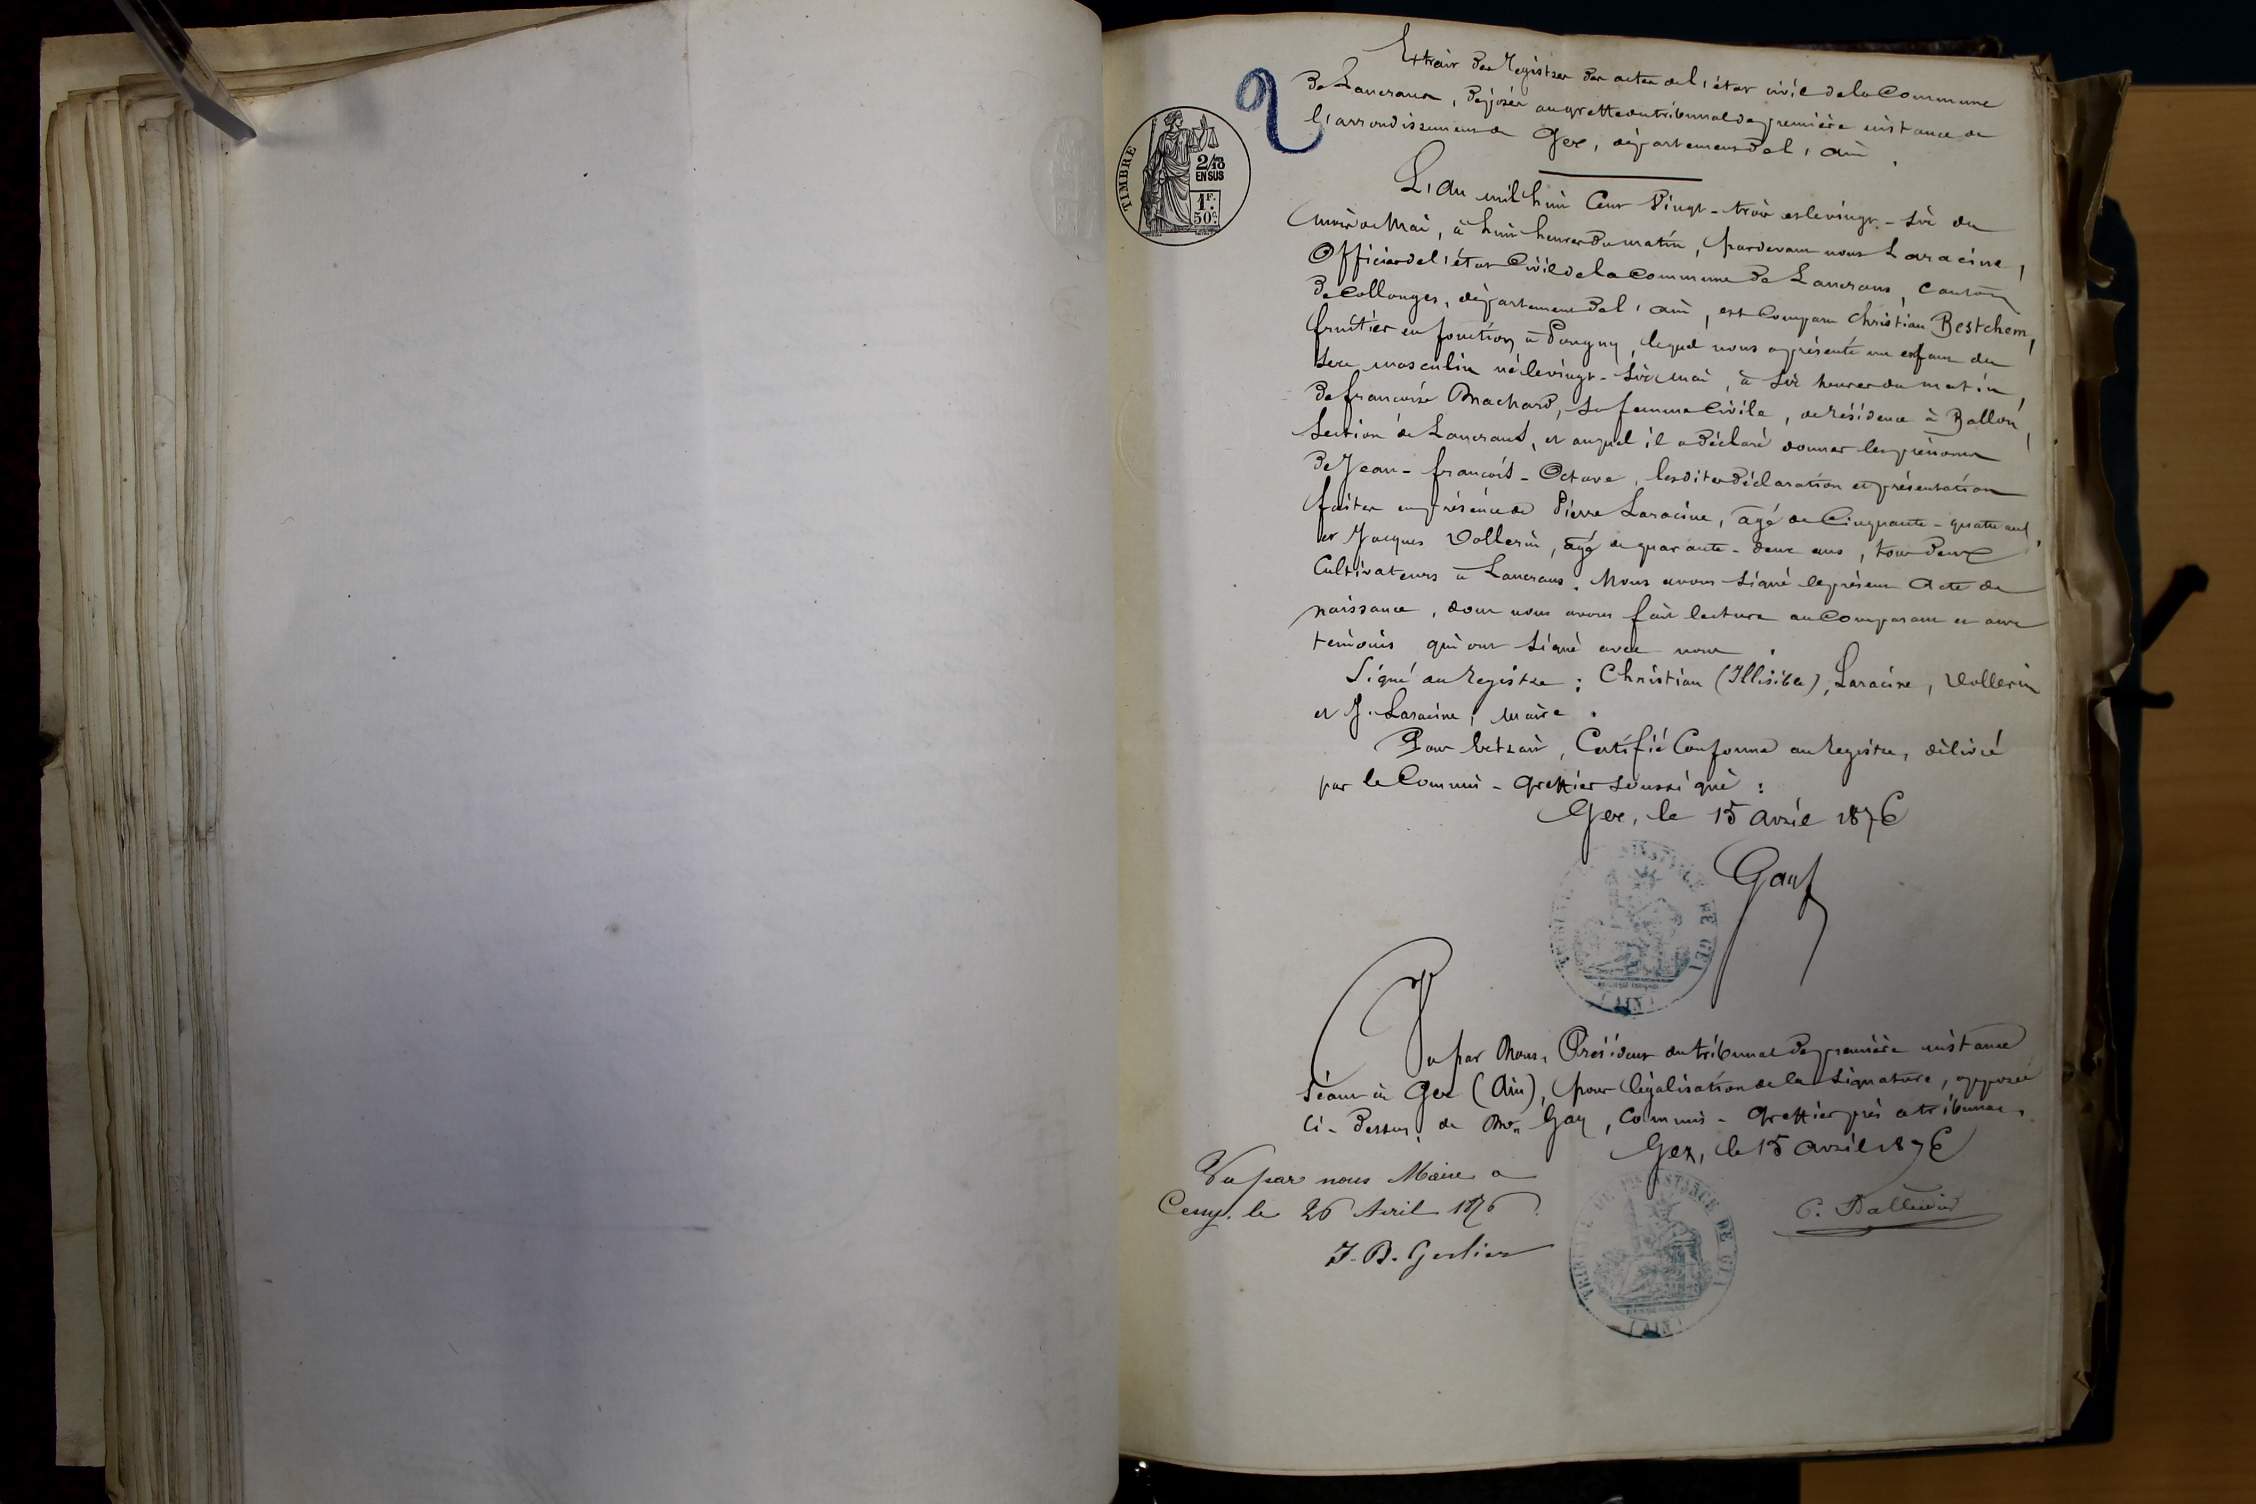 Extrait des Registres des actes de l'état civil de la Commune
de Lancrans, déposés au greffe du tribunal de première instance de
l'arrondissement de Gex, département de l'Ain.
2
TIMBRE
2/10
EN SUS
1F.
50c.
L'an mil huit Cent Vingt-trois et le vingt-six du
mois de Mai, à huit heures du matin, pardevant nous Laracine,
Officier de l'état Civil de la Commune de Lancrans, canton
de Collonges, département de l'Ain, est Comparu Christian Bestchem,
fruitier en fonction à Pougny, lequel nous a présenté un enfant du
sexe masculin né le vingt-six mai, à six heures du matin,
de françoise Machard, sa femme Civile, de résidence à Ballon,
Section de Lancrans, et auquel il a déclaré donner les prénoms
de Jean-françois-Octave, lesdites déclaration et présentation
faites en présence de Pierre Laracine, âgé de Cinquante-quatre ans,
et Jacques Vollerin, âgé de quarante-deux ans, tous deux
Cultivateurs à Lancrans. Nous avons signé le présent Acte de
naissance, dont nous avons fait lecture au Comparant et aux
temoins qui ont signé avec nous.
Signé au Registre : Christian (Illisible), Laracine, Vollerin
et J. Laracine, maire.
Pour Extrait, Certifié Conforme au Registre, délivré
par le Commis-greffier soussigné :
Gex, le 15 avril 1876
Gay
TRIBUNAL DE 1RE INSTANCE DE GEX
(AIN)
Vu par Nous, Président du tribunal de première instance
séant à Gex (Ain), pour légalisation de la signature, apposée
ci-dessus, de Mr. Gay, Commis-greffier près ce tribunal.
Gex, le 15 avril 1876
Vu par nous Maire a
Cessy. le 26 Avril 1876
J. B. Gerlier
TRIBUNAL DE 1RE INSTANCE DE GEX
(AIN)